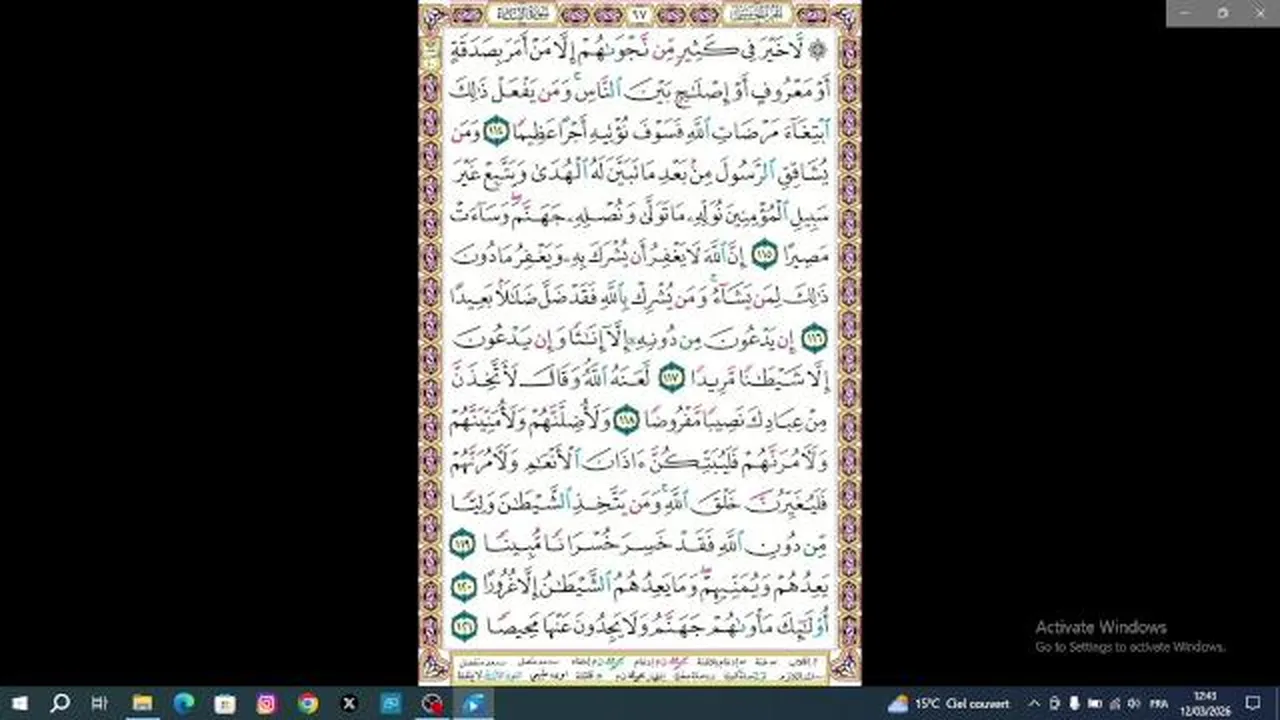 سورة النساء ٩٧ الجزء الخامس
۞ لَّا خَيْرَ فِي كَثِيرٍ مِّن نَّجْوَىٰهُمْ إِلَّا مَنْ أَمَرَ بِصَدَقَةٍ
أَوْ مَعْرُوفٍ أَوْ إِصْلَٰحٍۭ بَيْنَ ٱلنَّاسِۚ وَمَن يَفْعَلْ ذَٰلِكَ
ٱبْتِغَآءَ مَرْضَاتِ ٱللَّهِ فَسَوْفَ نُؤْتِيهِ أَجْرًا عَظِيمًا ١١٤ وَمَن
يُشَاقِقِ ٱلرَّسُولَ مِنۢ بَعْدِ مَا تَبَيَّنَ لَهُ ٱلْهُدَىٰ وَيَتَّبِعْ غَيْرَ
سَبِيلِ ٱلْمُؤْمِنِينَ نُوَلِّهِۦ مَا تَوَلَّىٰ وَنُصْلِهِۦ جَهَنَّمَۖ وَسَآءَتْ
مَصِيرًا ١١٥ إِنَّ ٱللَّهَ لَا يَغْفِرُ أَن يُشْرَكَ بِهِۦ وَيَغْفِرُ مَا دُونَ
ذَٰلِكَ لِمَن يَشَآءُۚ وَمَن يُشْرِكْ بِٱللَّهِ فَقَدْ ضَلَّ ضَلَٰلًۢا بَعِيدًا
١١٦ إِن يَدْعُونَ مِن دُونِهِۦٓ إِلَّآ إِنَٰثًا وَإِن يَدْعُونَ
إِلَّا شَيْطَٰنًا مَّرِيدًا ١١٧ لَّعَنَهُ ٱللَّهُۘ وَقَالَ لَأَتَّخِذَنَّ
مِنْ عِبَادِكَ نَصِيبًا مَّفْرُوضًا ١١٨ وَلَأُضِلَّنَّهُمْ وَلَأُمَنِّيَنَّهُمْ
وَلَءَامُرَنَّهُمْ فَلَيُبَتِّكُنَّ ءَاذَانَ ٱلْأَنْعَٰمِ وَلَءَامُرَنَّهُمْ
فَلَيُغَيِّرُنَّ خَلْقَ ٱللَّهِۚ وَمَن يَتَّخِذِ ٱلشَّيْطَٰنَ وَلِيًّا
مِّن دُونِ ٱللَّهِ فَقَدْ خَسِرَ خُسْرَانًا مُّبِينًا ١١٩
يَعِدُهُمْ وَيُمَنِّيهِمْۖ وَمَا يَعِدُهُمُ ٱلشَّيْطَٰنُ إِلَّا غُرُورًا ١٢٠
أُو۟لَٰٓئِكَ مَأْوَىٰهُمْ جَهَنَّمُ وَلَا يَجِدُونَ عَنْهَا مَحِيصًا ١٢١
Activate Windows
Go to Settings to activate Windows.
15°C Ciel couvert
FRA
12:43
12/03/2026